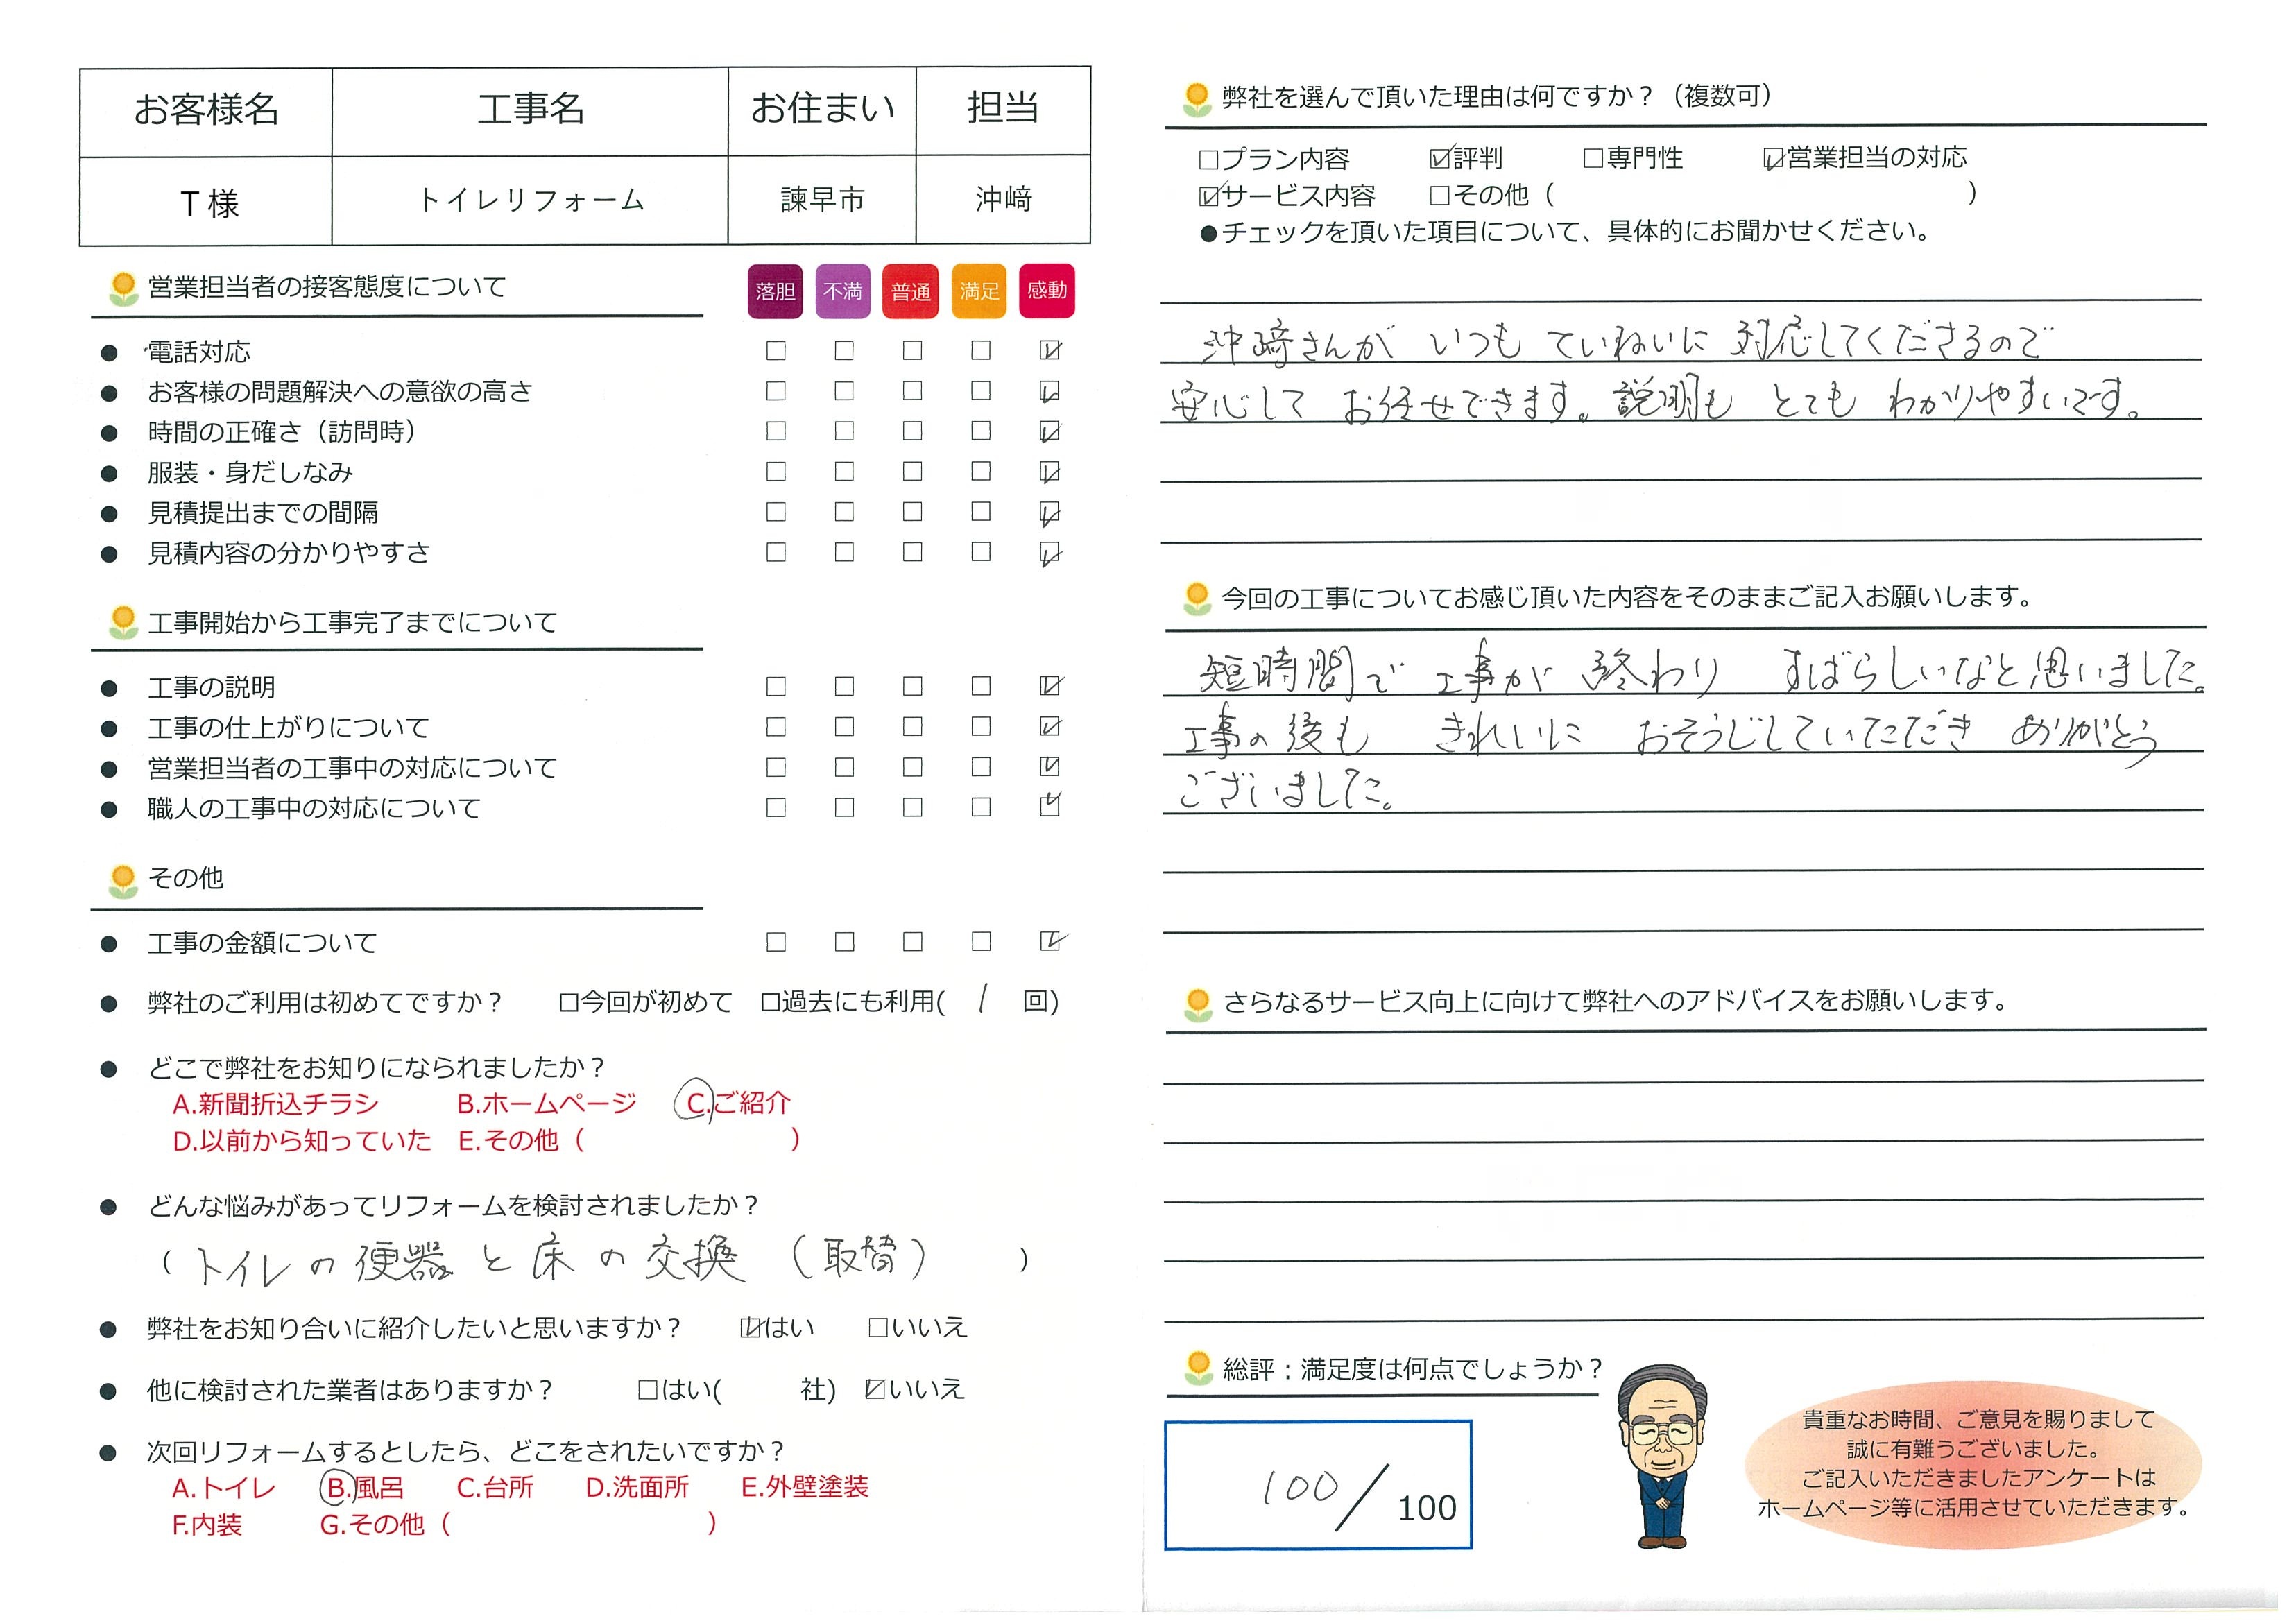 お客様名 工事名 お住まい 担当
T様 トイレリフォーム 諫早市 沖﨑
営業担当者の接客態度について 落胆 不満 普通 満足 感動
● 電話対応 □ □ □ □ ☑
● お客様の問題解決への意欲の高さ □ □ □ □ ☑
● 時間の正確さ（訪問時） □ □ □ □ ☑
● 服装・身だしなみ □ □ □ □ ☑
● 見積提出までの間隔 □ □ □ □ ☑
● 見積内容の分かりやすさ □ □ □ □ ☑
工事開始から工事完了までについて
● 工事の説明 □ □ □ □ ☑
● 工事の仕上がりについて □ □ □ □ ☑
● 営業担当者の工事中の対応について □ □ □ □ ☑
● 職人の工事中の対応について □ □ □ □ ☑
その他
● 工事の金額について □ □ □ □ ☑
● 弊社のご利用は初めてですか？ □今回が初めて □過去にも利用( 1 回)
● どこで弊社をお知りになられましたか？
A.新聞折込チラシ B.ホームページ C.ご紹介
D.以前から知っていた E.その他（ ）
● どんな悩みがあってリフォームを検討されましたか？
（トイレの便器と床の交換（取替） ）
● 弊社をお知り合いに紹介したいと思いますか？ ☑はい □いいえ
● 他に検討された業者はありますか？ □はい( 社) ☑いいえ
● 次回リフォームするとしたら、どこをされたいですか？
A.トイレ B.風呂 C.台所 D.洗面所 E.外壁塗装
F.内装 G.その他（ ）
弊社を選んで頂いた理由は何ですか？（複数可）
□プラン内容 ☑評判 □専門性 ☑営業担当の対応
☑サービス内容 □その他（ ）
●チェックを頂いた項目について、具体的にお聞かせください。
沖﨑さんが いつも ていねいに 対応してくださるので
安心して お任せできます。説明も とても わかりやすいです。
今回の工事についてお感じ頂いた内容をそのままご記入お願いします。
短時間で 工事が 終わり すばらしいなと思いました。
工事の後も きれいに おそうじしていただき ありがとう
ございました。
さらなるサービス向上に向けて弊社へのアドバイスをお願いします。
総評：満足度は何点でしょうか？
100／100
貴重なお時間、ご意見を賜りまして
誠に有難うございました。
ご記入いただきましたアンケートは
ホームページ等に活用させていただきます。